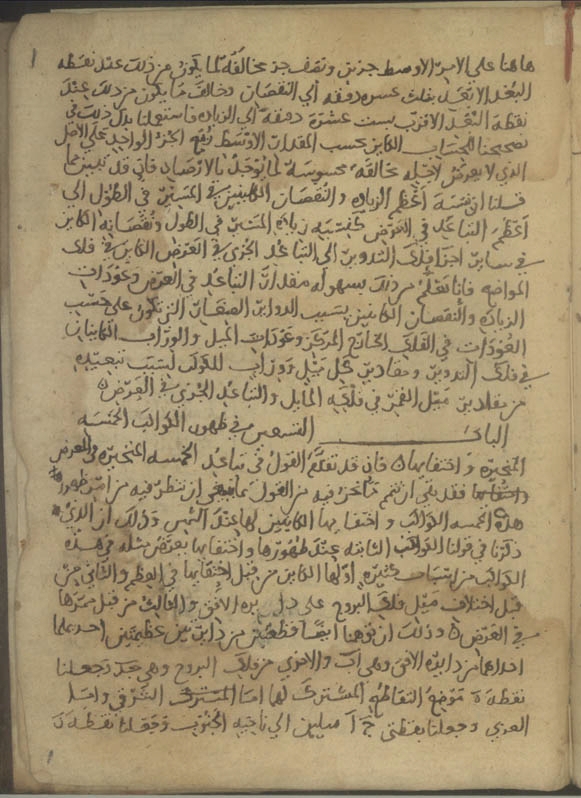 هاهنا على الامر الاوسط جزين ونصف جز مخالفة لما يكون من ذلك عند نقطة
البعد الابعد بثلث عشره دقيقة الى النقصان وخالف ما يكون من ذلك عند
نقطة البعد الاقرب بست عشرة دقيقة الى الزياده فاستعملنا بدل ذلك في
تصحيحنا الحساب الكاين بحسب المقدرات الاوسط ربع الجز الواحد على الاصل
الذي لا يعرض لاجله مخالفة محسوسة لما يوجد بالارصاد فاني قد تبين مما
قلنا ان نسبة اعظم الزياده والنقصان الكاينين في المسير في الطول الى
اعظم التباعد في العرض كنسبة زيادة المسير في الطول ونقصانه الكاين
في ساير اجزا فلك التدوير الى التباعد الجزي في العرض الكاين في تلك
المواضع فانا نعلم من ذلك بسهولة مقدار التباعد في العرض وعودات
الزياده والنقصان الكاينين بسبب الدواير الصغار التي تكون على حسب
العودات في الفلك الخارج المركز وعودات الميل والوراب الكاينان
في فلك التدوير ومقادير كل ميل ووراب للكوكب لسبب تبعيده
من مقادير ميل القمر في فلكه المايل والتباعد الجزي في العرض ه
الباب التاسع في ظهور الكواكب الخمسه
المتحيرة واختفايها ه فاني قد تقدم القول في تباعد الخمسه المتحيره في العرض
فقد بقى ان نتمم ما نحن فيه من القول بما ينبغي ان ننظر فيه من امر ظهور
هذه الخمسه الكواكب واختفايها الكاينين لها عند الشمس وذلك ان الذي
ذكرنا في قولنا الكواكب الثابته عند ظهورها واختفايها يعرض مثله في هذه
الكواكب من اسباب كثيره اولها الكاين من قبل اختفايها في العظم والثاني من
قبل اختلاف ميل فلك البروج على دايره الافق والثالث من قبل ممرها
في العرض ه وذلك ان توهمنا ايضا قطعتين من دايرتين عظيمتين احداهما
احداهما من دايرة الافق وهي اب والاخرى من فلك البروج وهي جد وجعلنا
نقطة ه موضع التقاطع المشترك لهما اما المشترك الشرقي واما
الغربي وجعلنا نقطتي ج ا مايلين الى ناحية الجنوب وجعلنا نقطة د